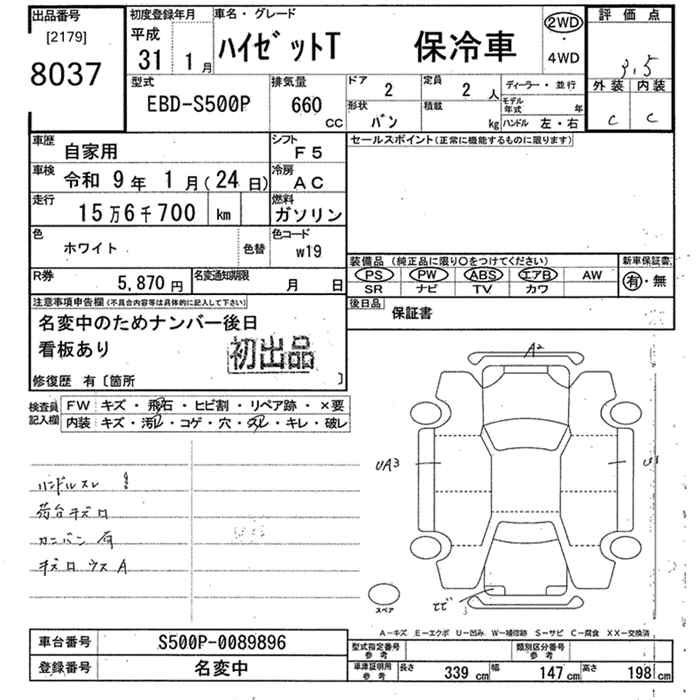 出品番号 初度登録年月 車名・グレード 評価点
[2179] 平成
8037 31 1月 ハイゼットT 保冷車 2WD ・ 4WD 3.5
型式 排気量 ドア 定員 ディーラー・並行 外装 内装
EBD-S500P 660 CC 2 2 人 モデル年式 年 C C
形状 積載
バン kg ハンドル 左・右
車歴 自家用 シフト F5 セールスポイント(正常に機能するものに限ります)
車検 令和 9年 1月(24日) 冷房 AC
走行 15万6千700 km 燃料 ガソリン
色 ホワイト 色替 色コード w19
装備品 (純正品に限り○をつけてください) 新車保証書
PS PW ABS エアB AW 有・無
SR ナビ TV カワ
R券 5,870円 名変通知期限 月 日
後日品 保証書
注意事項申告欄(不具合内容等は具体的に記入して下さい)
名変中のためナンバー後日
看板あり
初出品
修復歴 有〔箇所 〕
検査員記入欄 FW キズ・飛石・ヒビ割・リペア跡・×要
内装 キズ・汚レ・コゲ・穴・スレ・キレ・破レ
A2
UA3
U1
ハンドルスレ
荷台キズロ
カンバン有
キズロウスA
スペア
A-キズ E-エクボ U-凹み W-補修跡 S-サビ C-腐食 XX-交換済
車台番号 S500P-0089896
登録番号 名変中
型式指定番号 参考 類別区分番号 参考
車庫証明用 参考 長さ 339 cm 幅 147 cm 高さ 198 cm